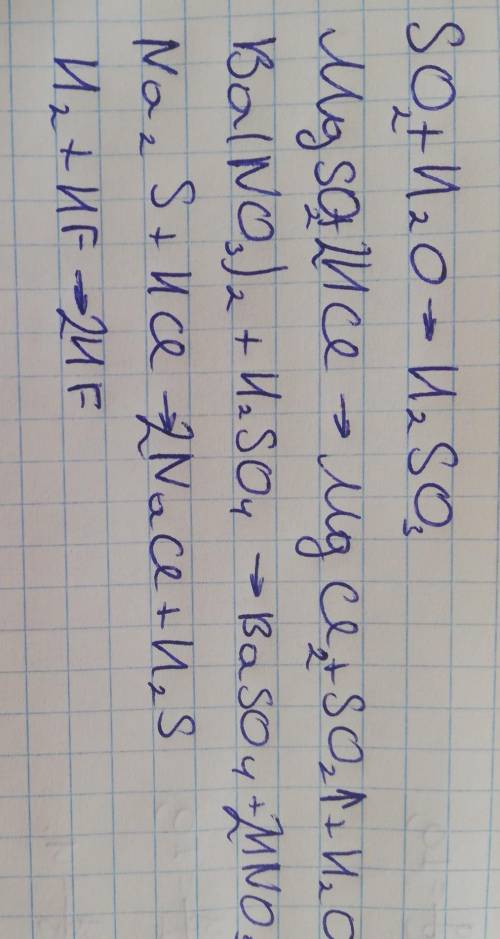 SO₂ + H₂O → H₂SO₃
MgSO₂ + 2HCl → MgCl₂ + SO₂↑ + H₂O
Ba(NO₃)₂ + H₂SO₄ → BaSO₄ + 2HNO₃
Na₂S + HCl → 2NaCl + H₂S
H₂ + HF → 2HF